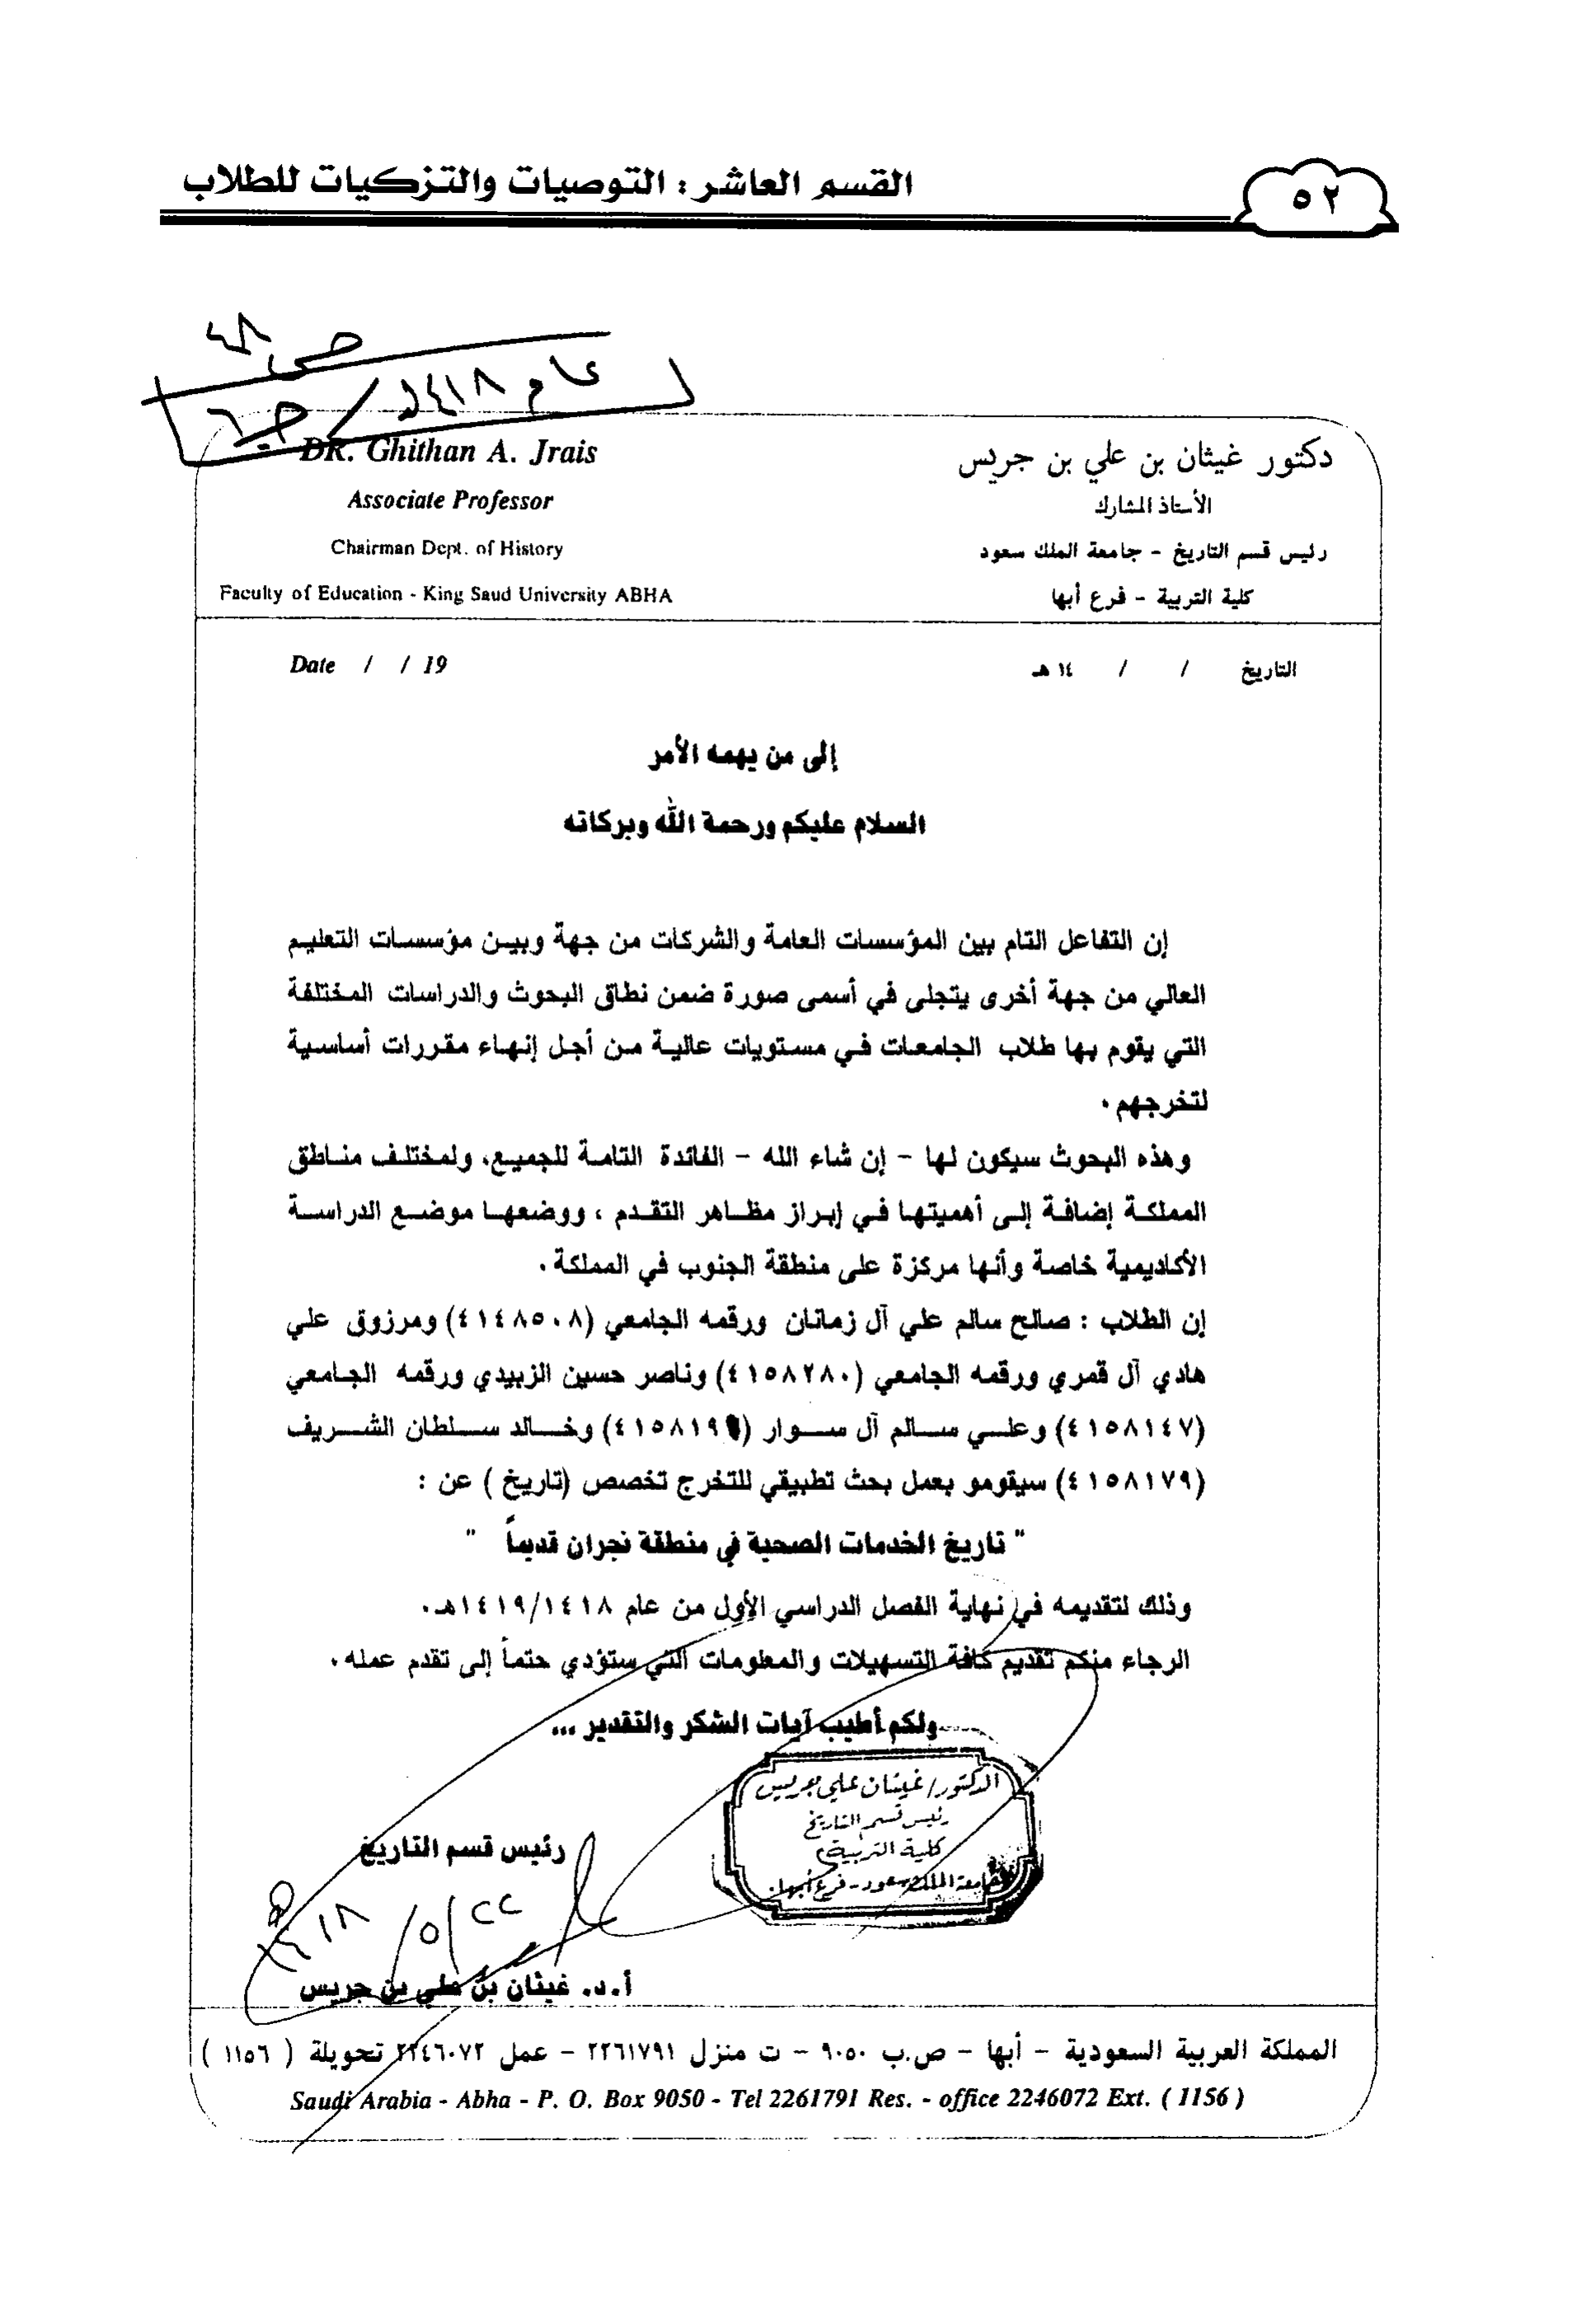 القسم العاشر : التوصيات والتزكيات للطلاب
٥٢
ص ٤٨
عام ١٤١٨هـ / ج٦
DR. Ghithan A. Jrais
Associate Professor
Chairman Dept. of History
Faculty of Education - King Saud University ABHA
دكتور غيثان بن علي بن جريس
الأستاذ المشارك
رئيس قسم التاريخ - جامعة الملك سعود
كلية التربية - فرع أبها
Date / / 19
التاريخ / / ١٤ هـ
إلى من يهمه الأمر
السلام عليكم ورحمة الله وبركاته
إن التفاعل التام بين المؤسسات العامة والشركات من جهة وبين مؤسسات التعليم
العالي من جهة أخرى يتجلى في أسمى صورة ضمن نطاق البحوث والدراسات المختلفة
التي يقوم بها طلاب الجامعات في مستويات عالية من أجل إنهاء مقررات أساسية
لتخرجهم .
وهذه البحوث سيكون لها - إن شاء الله - الفائدة التامة للجميع، ولمختلف مناطق
المملكة إضافة إلى أهميتها في إبراز مظاهر التقدم ، ووضعها موضع الدراسة
الأكاديمية خاصة وأنها مركزة على منطقة الجنوب في المملكة .
إن الطلاب : صالح سالم علي آل زمانان ورقمه الجامعي (٤١٤٨٥٠٨) ومرزوق علي
هادي آل قمري ورقمه الجامعي (٤١٥٨٢٨٠) وناصر حسين الزبيدي ورقمه الجامعي
(٤١٥٨١٤٧) وعلي سالم آل سوار وخالد سلطان الشريف
(٤١٥٨١٧٩) سيقومو بعمل بحث تطبيقي للتخرج تخصص (تاريخ ) عن :
" تاريخ الخدمات الصحية في منطقة نجران قديماً "
وذلك لتقديمه في نهاية الفصل الدراسي الأول من عام ١٤١٩/١٤١٨هـ.
الرجاء منكم تقديم كافة التسهيلات والمعلومات التي ستؤدي حتماً إلى تقدم عمله .
ولكم أطيب آيات الشكر والتقدير ...
الدكتور/ غيثان علي جريس
رئيس قسم التاريخ
كلية التربية
جامعة الملك سعود - فرع أبها
رئيس قسم التاريخ
٢٢/٥/١٤١٨هـ
أ.د. غيثان بن علي بن جريس
المملكة العربية السعودية - أبها - ص.ب ٩٠٥٠ - ت منزل ٢٢٦١٧٩١ - عمل ٢٢٤٦٠٧٢ تحويلة ( ١١٥٦ )
Saudi Arabia - Abha - P. O. Box 9050 - Tel 2261791 Res. - office 2246072 Ext. ( 1156 )